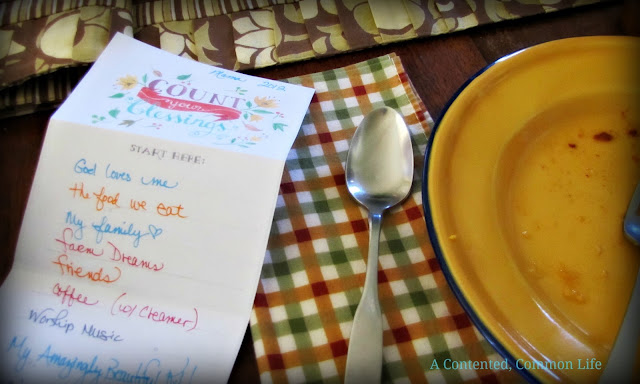 Mama 2012
COUNT
your
blessings
START HERE:
God loves me
the food we eat
My family ♡
farm Dreams
friends
coffee (w/ creamer)
Worship Music
My Amazingly Beautiful
A Contented, Common Life